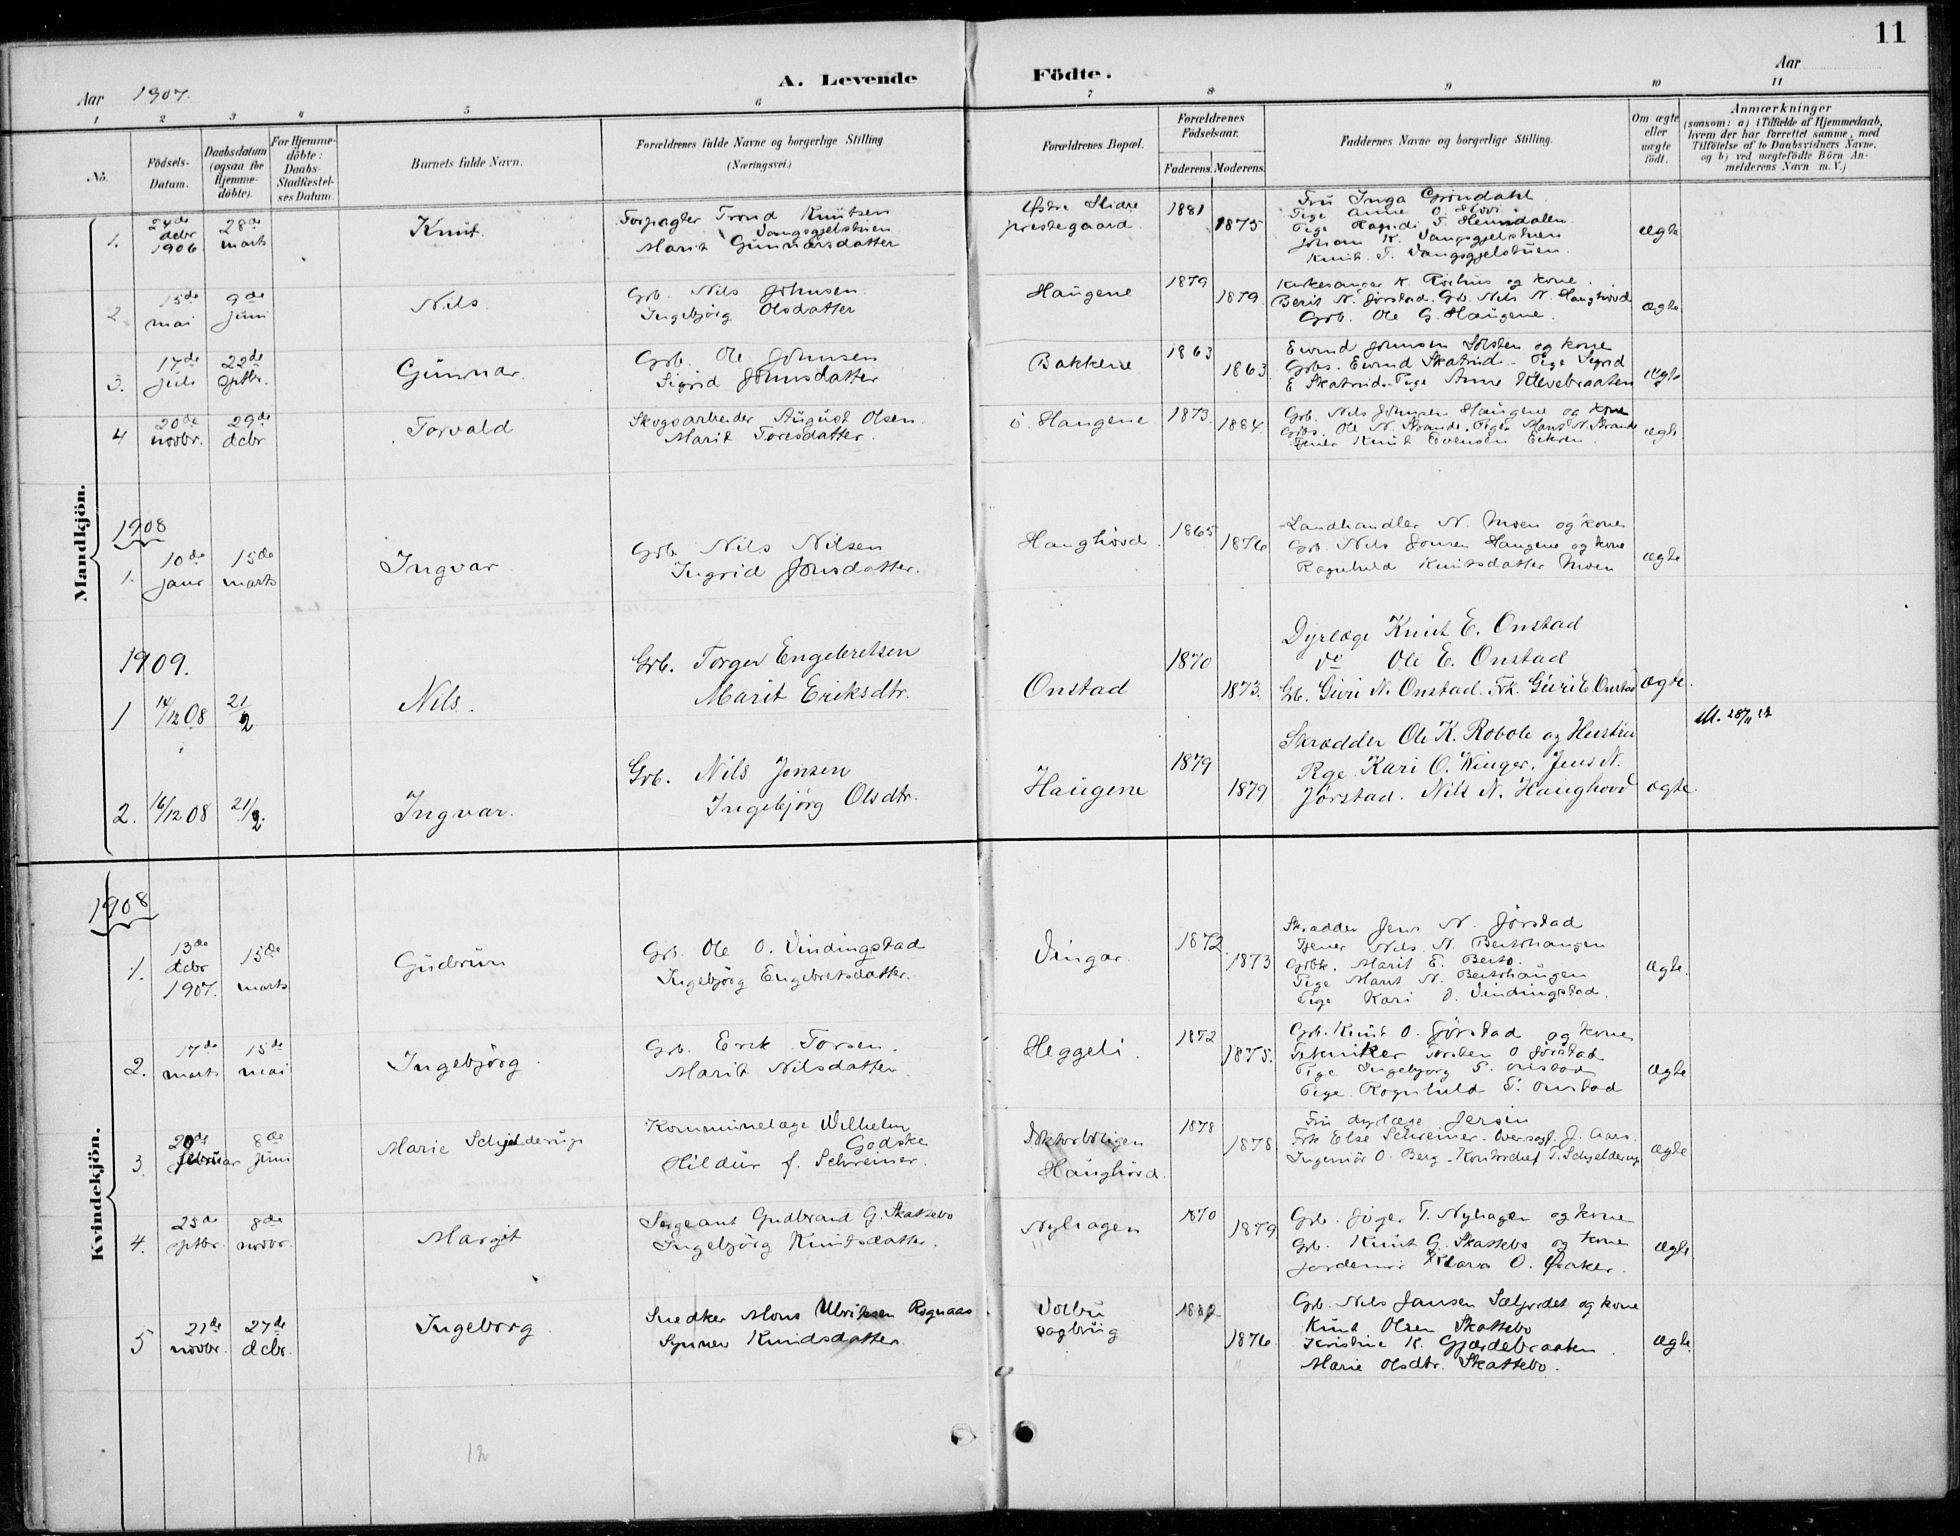 11
A. Levende Födte.
Aar 1907.
Aar
1 2 3 4 5 6 7 8 9 10 11
No.
Födsels-Datum.
Daabsdatum (ogsaa for Hjemme-döbte).
For Hjemme-döbte: Daabs-Stadfæstel-ses Datum.
Barnets fulde Navn.
Forældrenes fulde Navne og borgerlige Stilling (Næringsvei.)
Forældrenes Bopæl.
Forældrenes Födselsaar.
Faderens. Moderens.
Faddernes Navne og borgerlige Stilling.
Om ægte eller uægte födt.
Anmærkninger
(saasom: a) i Tilfælde af Hjemmedaab, hvem der har forrettet samme, med Tilföielse af to Daabsvidners Navne, og b) ved uægtefödte Börn An-melderens Navn m. V.)
Mandkjön.
1. 24de dcbr 1906 28de marts Knut. Forpagter Trond Knutsen Vangsgjelstuen
Marit Gunnarsdatter
Østre Slidre prestegaard. 1881 1875
Fru Inga Gröndahl.
Pige Anne O. Hovi
Pige Ragndi T. Hemdalen
Johan K. Vangsgjelstuen
Knut T. Vangsgjelstuen.
ægte
2. 15de mai 9de juni Nils. Grb. Nils Johnsen.
Ingebjörg Olsdatter
Haugene 1879 1879.
Kirkesanger K. Röihus og kone.
Berit N. Jörstad. Grb. Nils N. Haughövd
Grb. Ole G. Haugene.
ægte
3. 17de juli 22de sptbr. Gunnar. Grb. Ole Johnsen
Sigrid Johnsdatter
Bakkene 1863 1863.
Eivind Johnsen Solsten og kone
Grbs. Eivind Skatrud - Pige Sigrid
E Skatrud. Pige Anne Klevebraaten
ægte
4 20de novbr. 29de dcbr Torvald Skogsarbeider August Olsen.
Marit Toresdatter.
ö. Haugene 1873. 1884.
Grb. Nils Johnsen Haugene og kone
Grbs. Ole N. Strande. Pige Mari N. Strande
Tjener Knut Evensen Eikren.
ægte
1908
1. 10de janr 15de marts Ingvar Grb Nils Nilsen
Ingrid Jonsdatter.
Haughövd. 1865 1876
Landhandler N. Moen og kone
Grb. Nils Jonsen Haugene og kone
Ragnhild Knutsdatter Moen
ægte
1909.
1 14/12 08 21/2 Nils. Grb. Torger Engebretsen
Marit Eriksdtr.
Onstad 1870 1873.
Dyrlæge Knut E. Onstad
do Ole E. Onstad
Grb. Guri N. Onstad. Frk. Guri E. Onstad
ægte.
2. 16/12 08 21/2. Ingvar. Grb. Nils Jonsen
Ingebjörg Olsdtr.
Haugene 1879 1879
Skrædder Ole K. Robole og Hustru
Pge. Kari O. Winger. Jens N.
Jörstad. Nils N. Haughovd
ægte.
Kvindekjön.
1908
1. 13de dcbr 1907. 15de marts Gudrun Grb. Ole O. Vindingstad
Ingebjörg Engebretsdatter.
Vingar. 1872 1873
Skrædder Jens N. Jörstad
Tjener Nils N. Bertohaugen
Grbk. Marit E. Berto.
Pige Marit N. Bertohaugen
Pige Kari O. Vindingstad.
ægte.
2. 17de marts 15de mai Ingebjörg. Grb. Erik Torsen.
Marit Nilsdatter.
Heggeli. 1872 1875.
Grb. Knut O. Jörstad og kone
Tekniker Torsten O Jörstad
Pige Ingebjörg T. Onstad
Pige Ragnhild T. Onstad
ægte
3. 20de februar 8de juni Marie Schjelderup Kommunelæge Wilhelm Godske
Hildur f. Schreiner.
Doktorboligen Haughövd. 1878 1878
Fru dyrlæge Jersin
Frk Else Schreiner. Oversagf. J. Aars.
Ingeniör O. Berg - Kontorchef T. Schjelderup
ægte
4. 25de sptbr. 8de novbr. Margit Sergeant Gudbrand G. Skattebo
Ingebjörg Knutsdatter.
Nyhagen 1870 1879
Grb. Jöger T. Nyhagen og kone
Grb. Knut G. Skattebo og kone
Jordemor Klara O. Öiaker.
ægte
5 21de novbr. 27de dcbr. Ingeborg Snedker Mons Ulriksen Rognaas
Synnev Knudsdatter.
Volbu sagbrug 1882 1876
Grb. Nils Jansen Sæljordet og kone
Knut Olsen Skattebo
Kristine K. Gjærdebraaten.
Marie Olsdtr. Skattebo.
ægte
12